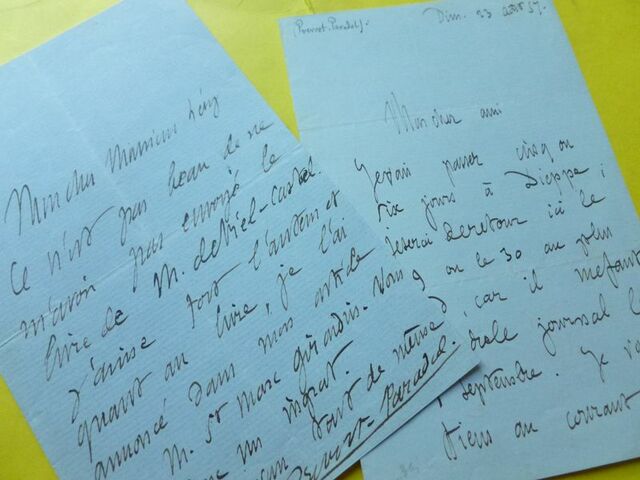 Mon cher Monsieur Lévy
Ce n'est pas beau de ne
m'avoir pas envoyé le
livre de M. de Viel-Castel.
J'aime fort l'auteur et
quant au livre, je l'ai
annoncé dans mon article
M. St Marc Girardin. Vous
un ingrat.
tout de même
Prévost-Paradol.
(Prevost-Paradol).
Dim. 23 août 57.
Mon cher ami
Je vais passer cinq ou
six jours à Dieppe;
je serai de retour ici le
ou le 30 au plus
car il me faut
journal le
septembre. Je
tiens au courant